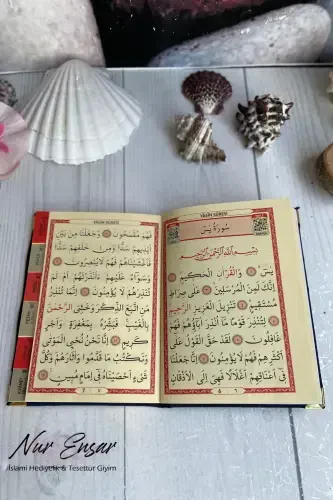 YÂSÎN SÛRESİ
سُورَةُ يٰسٓ
بِسْمِ اللّٰهِ الرَّحْمٰنِ الرَّحِيمِ
يٰسٓ ۞ وَالْقُرْاٰنِ الْحَكِيمِ ۞
اِنَّكَ لَمِنَ الْمُرْسَلِينَ ۞ عَلٰى صِرَاطٍ
مُسْتَقِيمٍ ۞ تَنْزِيلَ الْعَزِيزِ الرَّحِيمِ
۞ لِتُنْذِرَ قَوْمًا مَٓا اُنْذِرَ اٰبَٓاؤُ۬هُمْ فَهُمْ
غَافِلُونَ ۞ لَقَدْ حَقَّ الْقَوْلُ عَلٰٓى
اَكْثَرِهِمْ فَهُمْ لَا يُؤْمِنُونَ ۞ اِنَّا جَعَلْنَا
فِٓي اَعْنَاقِهِمْ اَغْلَالًا فَهِيَ اِلَى الْاَذْقَانِ
YÂSÎN SÛRESİ
فَهُمْ مُقْمَحُونَ ۞ وَجَعَلْنَا مِنْ بَيْنِ
اَيْدِيهِمْ سَدًّا وَمِنْ خَلْفِهِمْ سَدًّا
فَاَغْشَيْنَاهُمْ فَهُمْ لَا يُبْصِرُونَ ۞
وَسَوَٓاءٌ عَلَيْهِمْ ءَاَنْذَرْتَهُمْ اَمْ لَمْ
تُنْذِرْهُمْ لَا يُؤْمِنُونَ ۞ اِنَّمَا تُنْذِرُ
مَنِ اتَّبَعَ الذِّكْرَ وَخَشِيَ الرَّحْمٰنَ
بِالْغَيْبِ فَبَشِّرْهُ بِمَغْفِرَةٍ وَاَجْرٍ
كَرِيمٍ ۞ اِنَّا نَحْنُ نُحْيِ الْمَوْتٰى
وَنَكْتُبُ مَا قَدَّمُوا وَاٰثَارَهُمْ وَكُلَّ
شَيْءٍ اَحْصَيْنَاهُ فِٓي اِمَامٍ مُبِينٍ ۞
Nur Ensar
İslami Hediyelik & Tesettür Giyim